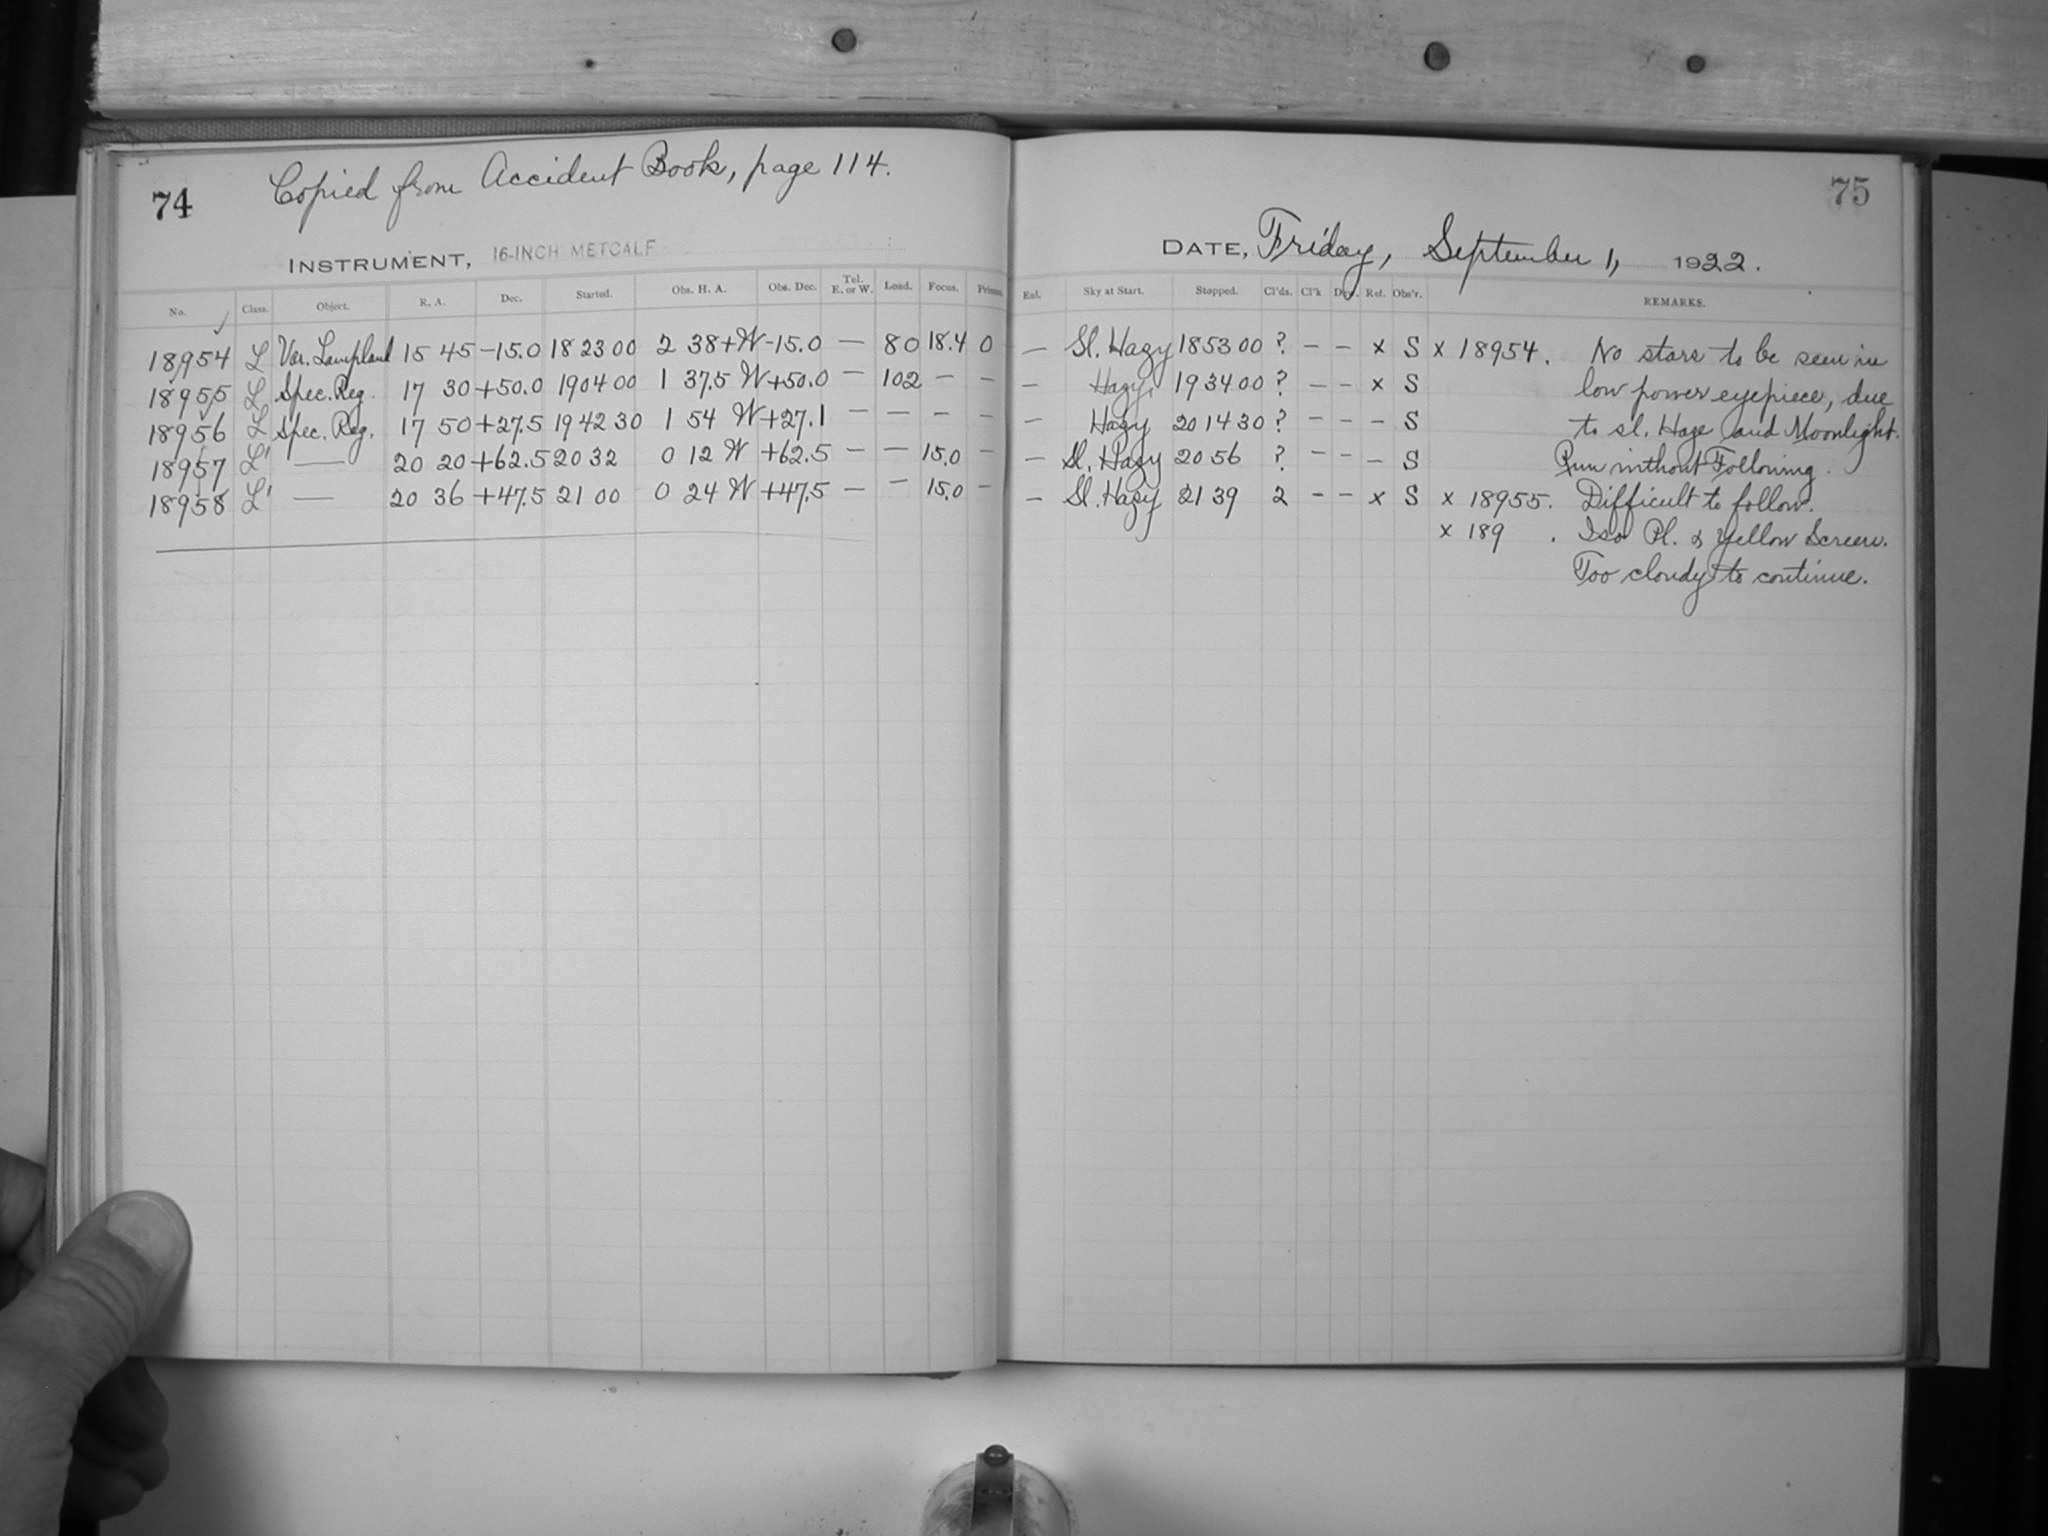 74
Copied from Accident Book, page 114.
INSTRUMENT, 16-INCH METCALF
No. Class. Object. R. A. Dec. Started. Obs. H. A. Obs. Dec. Tel. E. or W. Load. Focus. Prisms.
18954 L Var. Lampland 15 45 -15.0 18 23 00 2 38+W -15.0 — 80 18.4 0
18955 L Spec. Reg. 17 30 +50.0 19 04 00 1 37.5 W +50.0 — 102 — —
18956 L Spec. Reg. 17 50 +27.5 19 42 30 1 54 W +27.1 — — — —
18957 L' — 20 20 +62.5 20 32 0 12 W +62.5 — — 15.0 —
18958 L' — 20 36 +47.5 21 00 0 24 W +47.5 — — 15.0 —
75
DATE, Friday, September 1, 1922.
Eal. Sky at Start. Stopped. Cl'ds. Cl'k Dew. Ref. Obs'r. REMARKS.
— Sl. Hazy 18 53 00 ? — — x S x 18954. No stars to be seen in
— Hazy. 19 34 00 ? — — x S low power eyepiece, due
— Hazy 20 14 30 ? — — — S to sl. Haze and Moonlight.
— Sl. Hazy 20 56 ? — — — S Run without Following.
— Sl. Hazy 21 39 2 — — x S x 18955. Difficult to follow.
x 189 . Iso Pl. & Yellow Screen.
Too cloudy to continue.